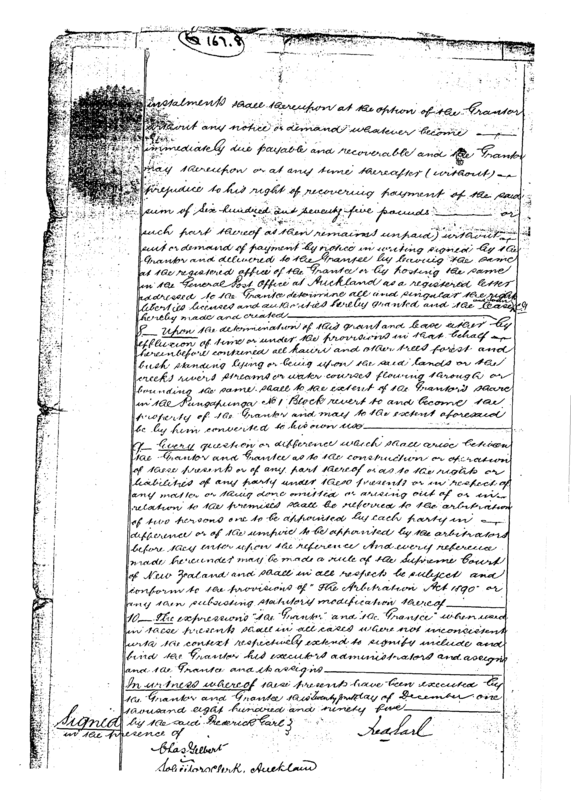 Q 167.8
instalments shall thereupon at the option of the Grantor
without any notice or demand whatever become
immediately due payable and recoverable and the Grantor
may thereupon or at any time thereafter (without)
prejudice to his right of recovering payment of the said
sum of Six hundred and seventy five pounds or
such part thereof as then remains unpaid) without
suit or demand of payment by notice in writing signed by the
Grantor and delivered to the Grantee by leaving the same
at the registered office of the Grantee or by posting the same
in the General Post Office at Auckland as a registered letter
addressed to the Grantee determine all and singular the rights
liberties licenses and authorities hereby granted and the lease
hereby made and created
8 Upon the determination of this grant and lease either by
effluxion of time or under the provisions in that behalf
hereinbefore contained all kauri and other trees forest and
bush standing lying or being upon the said lands or the
creeks rivers streams or water courses flowing through or
bounding the same shall to the extent of the Grantor's share
in the Pungapunga No 1 Block revert to and become the
property of the Grantor and may to the extent aforesaid
be by him converted to his own use
9 Every question or difference which shall arise between
the Grantor and Grantee as to the construction or operation
of these presents or of any part thereof or as to the rights or
liabilities of any party under these presents or in respect of
any matter or thing done omitted or arising out of or in
relation to the premises shall be referred to the arbitration
of two persons one to be appointed by each party in
difference or of the umpire to be appointed by the arbitrators
before they enter upon the reference And every reference
made hereunder may be made a rule of the Supreme Court
of New Zealand and shall in all respects be subject and
conform to the provisions of "The Arbitration Act 1890" or
any then subsisting statutory modification thereof
10 The expressions "the Grantor" and "the Grantee" when used
in these presents shall in all cases where not inconsistent
with the context respectively extend to signify include and
bind the Grantor his executors administrators and assigns
and the Grantee and its assigns
In witness whereof these presents have been executed by
the Grantor and Grantee this twenty first day of December one
thousand eight hundred and ninety five
Signed by the said Frederick Earl }
in the presence of
Fred Earl
Chas. Gilbert
Solicitors Clerk. Auckland